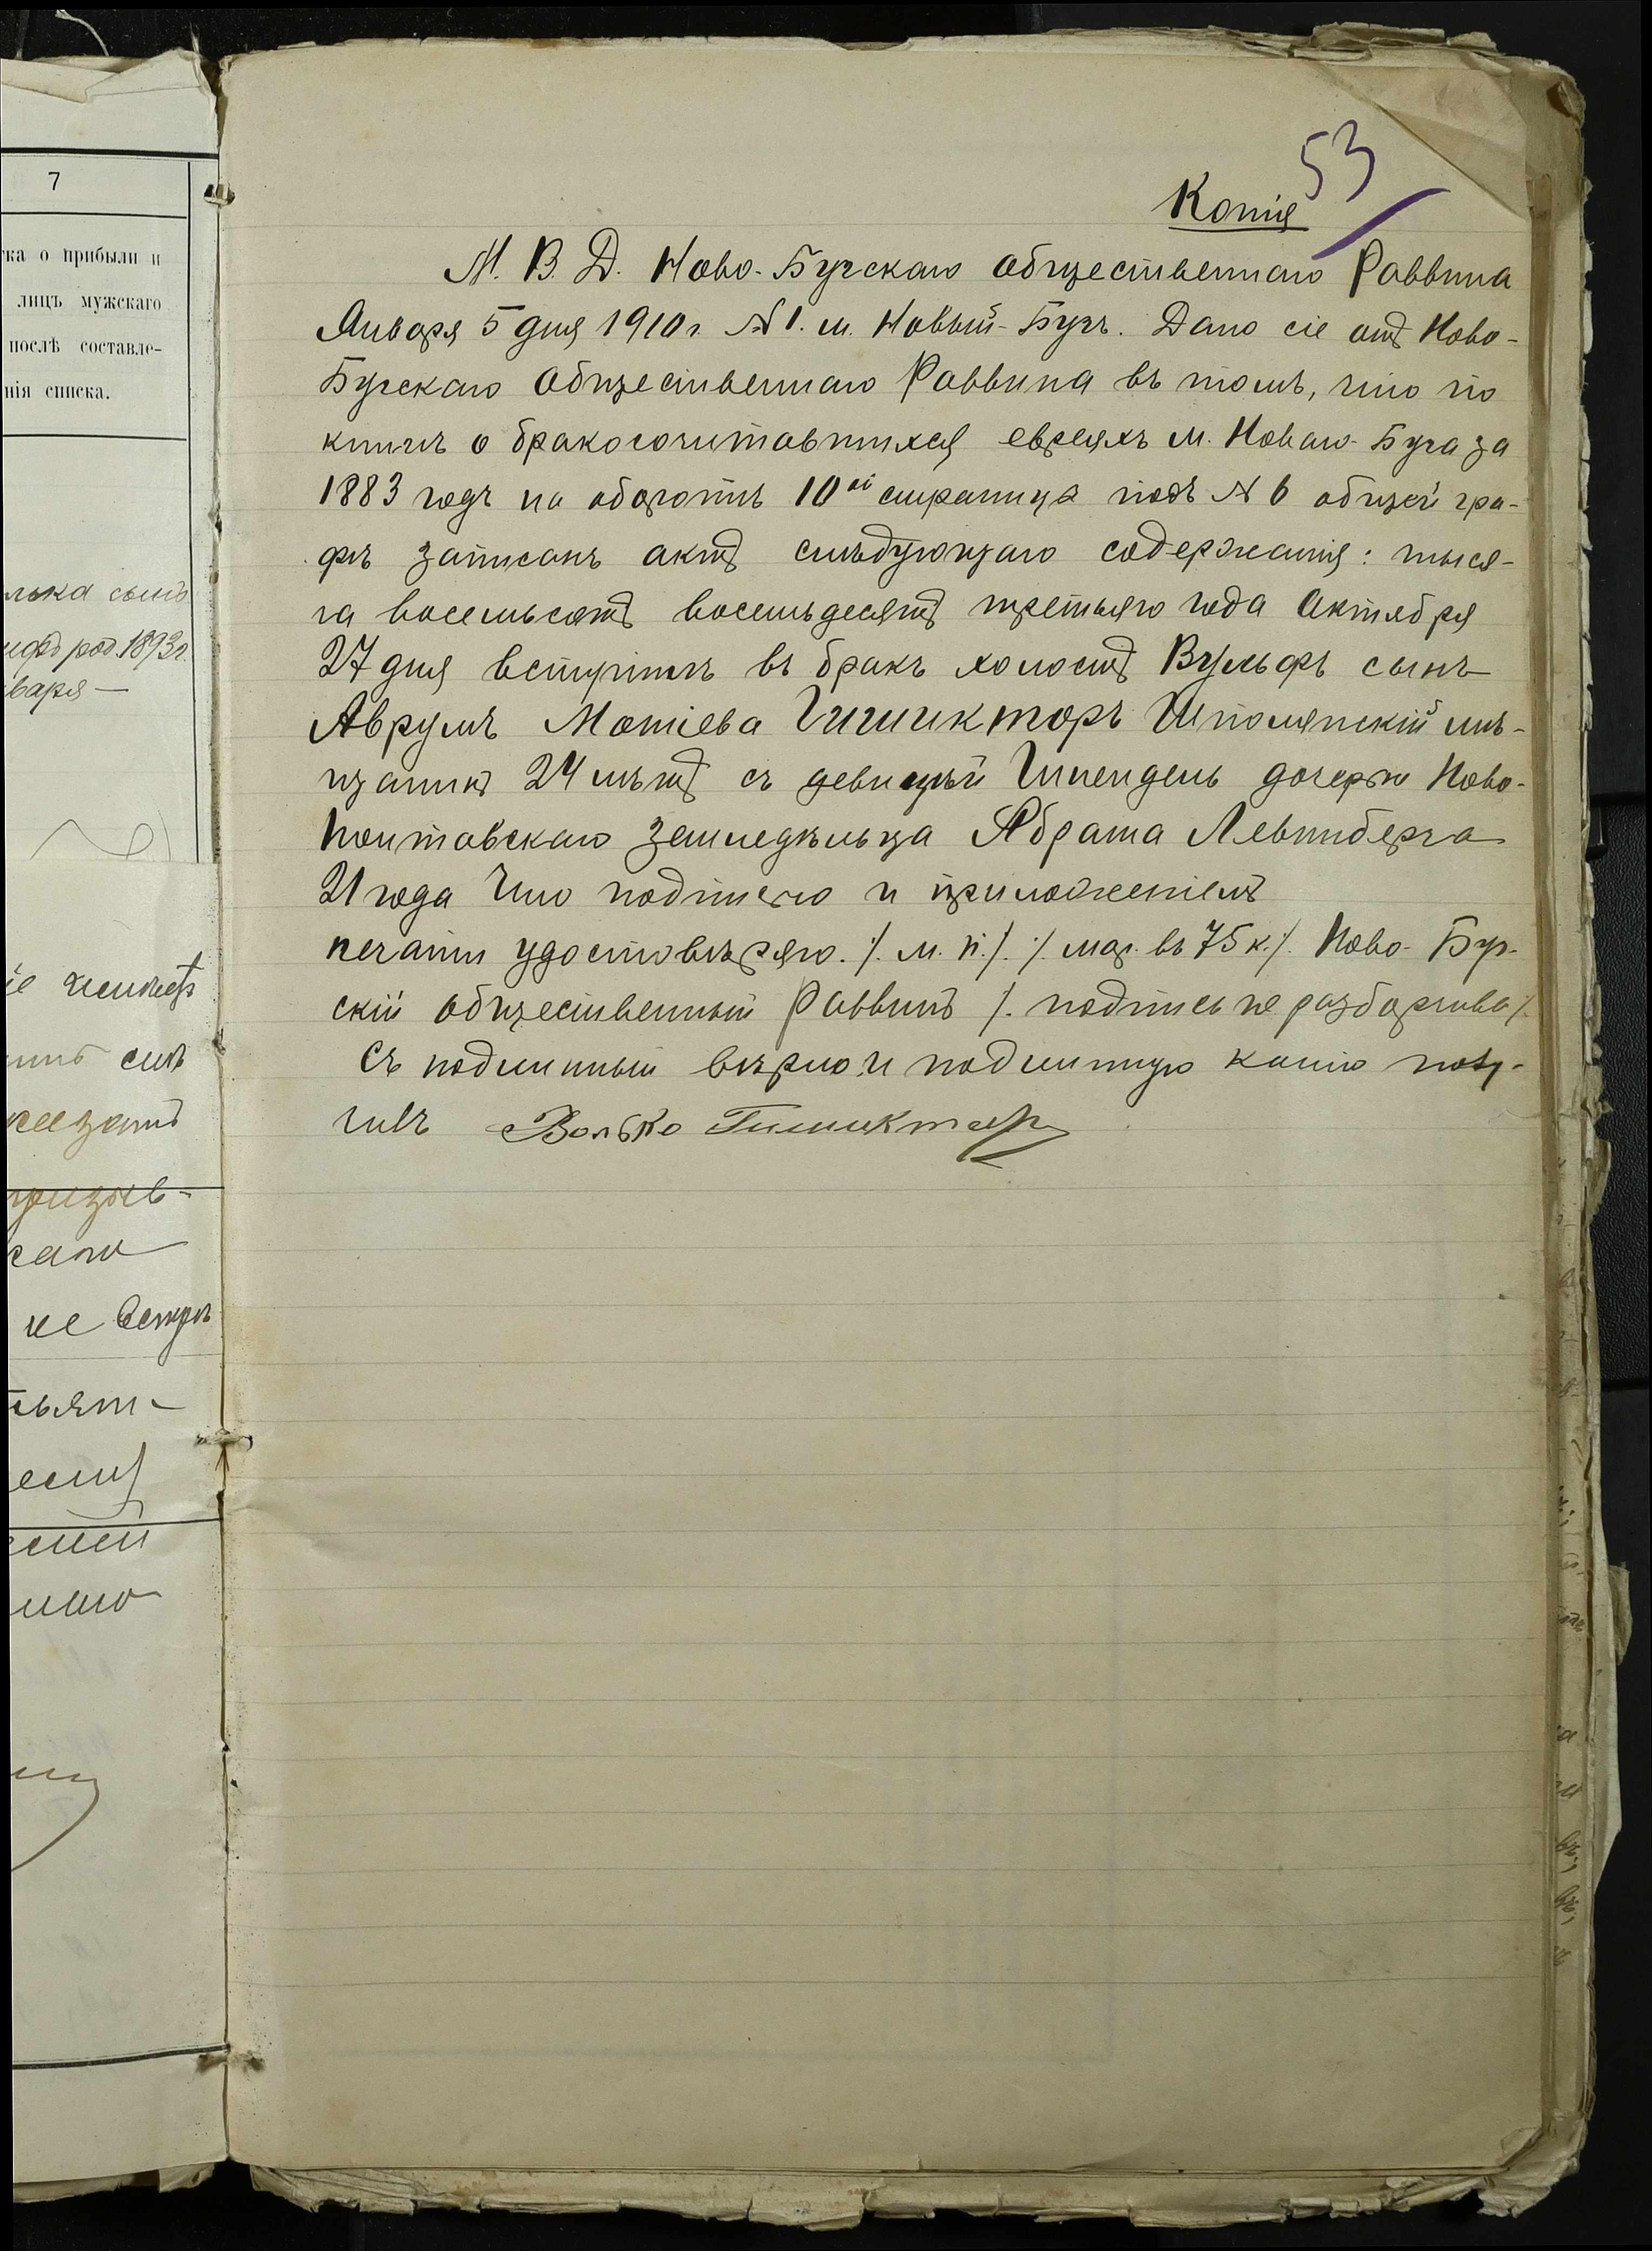 7
тка о прибыли и
лицъ мужскаго
послѣ составле-
нія списка.
сынъ
род. 1893 г.
варя —
не
53
Копія
М. В. Д. Ново-Бугскаго общественнаго Раввина
Января 5 дня 1910 г. № 1. м. Новый-Бугъ. Дано сіе отъ Ново-
Бугскаго Общественнаго Раввина въ томъ, что по
книгѣ о бракосочитавшихся евреяхъ м. Новаго-Буга за
1883 годъ на оборотѣ 10ой страница подъ № 6 общей гра-
фѣ записанъ актъ слѣдующаго содержанія: тыся-
ча восемьсотъ восемьдесятъ третьяго года Октября
27 дня вступилъ въ бракъ холостъ Вульфъ сынъ
Аврумъ Мотіева Гишикторъ Шполянскій мѣ-
щанинъ 24 лѣтъ съ девицый Шпендель дочерью Ново-
Полтавскаго земледѣльца Абрама Левинберга
21 года Что подписю и приложеніемъ
печати удостовѣряю. /. м. п. /. /. мар. въ 75 к. /. Ново-Буг-
скій общественный Раввинъ /. подпись не разборчива /.
Съ подлинный вѣрно и подлинную копію полу-
чилъ Волько Гишиктор